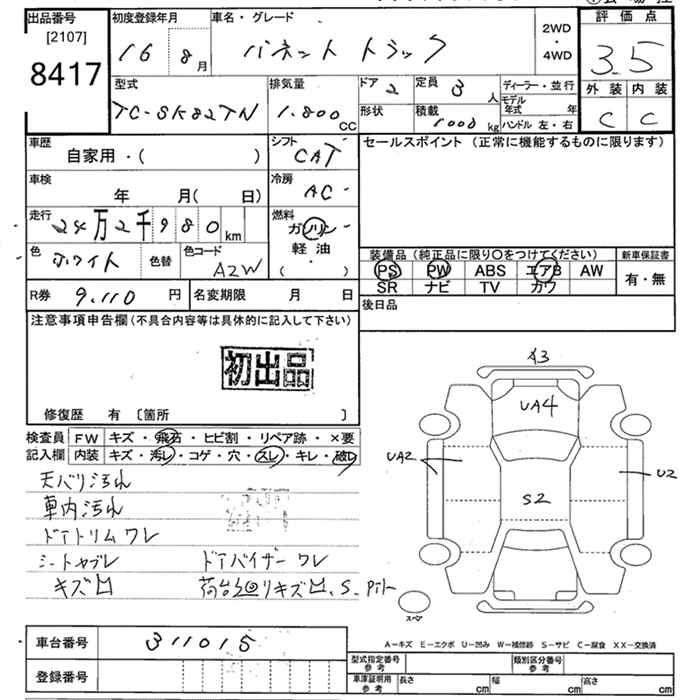 出品番号
[2107]
8417
初度登録年月
16 8月
車名・グレード
バネット トラック
2WD
・
4WD
評価点
3.5
外装 内装
C C
型式
TC-SK82TN
排気量
1.800 CC
ドア 2
形状
定員 3 人
積載 1000 kg
ディーラー・並行
モデル年式 年
ハンドル 左・右
車歴
自家用・( )
シフト
CAT
セールスポイント (正常に機能するものに限ります)
車検
年 月( 日)
冷房
AC
走行
24万2千980 km
燃料
ガソリン
軽油
( ・ )
色
ホワイト
色替
色コード
A2W
装備品 (純正品に限り○をつけてください)
PS PW ABS エアB AW
SR ナビ TV カワ
新車保証書
有・無
R券 9,110 円
名変期限 月 日
後日品
注意事項申告欄(不具合内容等は具体的に記入して下さい)
初出品
修復歴 有 〔箇所 〕
検査員記入欄
FW キズ・飛石・ヒビ割・リペア跡・×要
内装 キズ・汚れ・コゲ・穴・スレ・キレ・破レ
天バリ汚れ
車内汚れ
ドアトリムワレ
シートヤブレ
ドアバイザーワレ
キズ凹
荷台廻リキズ凹、S、Pイト
A3
UA4
UA2
U2
S2
スペア
車台番号 311015
登録番号
A－キズ E－エクボ U－凹み W－補修跡 S－サビ C－腐食 XX－交換済
型式指定番号 参考
類別区分番号 参考
車庫証明用 参考
長さ cm
幅 cm
高さ cm